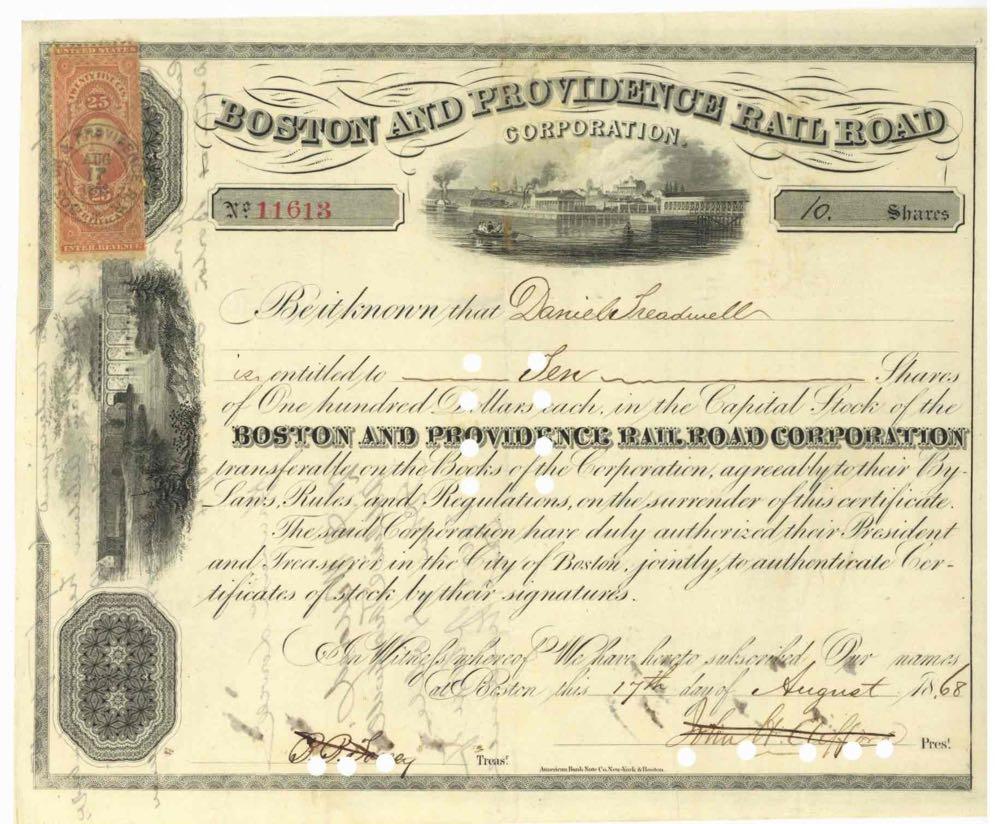 UNITED STATES
TWENTY FIVE CENTS
25
AUG
17
25
INTER. REVENUE
BOSTON AND PROVIDENCE RAIL ROAD
CORPORATION.
No 11613
10. Shares
Be it known that Daniel Treadwell
is entitled to Ten Shares
of One hundred Dollars each, in the Capital Stock of the
BOSTON AND PROVIDENCE RAIL ROAD CORPORATION
transferable on the Books of the Corporation, agreeably to their By-
Laws, Rules, and Regulations, on the surrender of this certificate.
The said Corporation have duly authorized their President
and Treasurer in the City of Boston, jointly, to authenticate Cer-
tificates of stock by their signatures.
In Witness whereof We have hereto subscribed Our names
at Boston this 17th day of August 1868
John H. Clifford Prest.
Treasr.
American Bank Note Co. New-York & Boston.